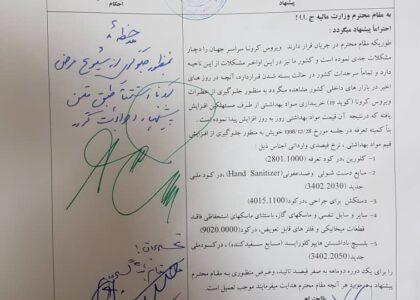 پیشنهاد
احکام
به مقام محترم وزارت مالیه ج.ا.ا!
احتراماً پیشنهاد میگردد:
طوریکه مقام محترم در جریان قرار دارند ویروس کرونا سراسر جهان را دچار
مشکلات جدی نموده است و کشور ما نیز در این اواخر مشکلات از این ناحیه
دارد و تماماً سرحدات کشور در حالت بسته شدن قراردارد، آنچه در روز های
اخیر در بازار های داخلی کشور مشاهده میگردد به منظور جلوگیری از خطرات
ویروس کرونا (کوید 19) خریداری مواد بهداشتی از طرف مستهلکین افزایش
یافته که درنتیجه آن قیمت مواد بهداشتی روز به روز افزایش پیدا نموده است.
بناً کمیته تعرفه در جلسه مورخ 1398/12/28 خویش به منظور جلوگیری از افزایش
قیم مواد بهداشتی، نرخ فیصدی وارداتی اجناس ذیل:
1- کلورین، در کود تعرفه (2801.1000)
2- مایع دست شوئی وضدعفونی (Hand Sanitizer)، در کود ملی
جدید (3402.2030)
3- دستکش برای جراحی، در کود (4015.1100)
4- سایر وسایل تنفسی و ماسکهای گاز، باستثنای ماسکهای استحفاظی فاقد
قطعات میخانیکی و فلتر های قابل تعویض، در کود (9020.0000)
5- بلیچ باداشتن هایپوکلوراید (مایع سفید کننده)، در کود ملی جدید
(3402.2050)
را برای یک دوره دوماهه به صفر فیصد تائید، وغرض منظوری به مقام محترم
پیشنهاد هرنوعیکه آنچه مقام محترم هدایت میفرمایند موجب تعمیل است.
بااحترام
ملاحظه شد
بمنظور جلوگیری از شیوع مرض
کرونا استثنأ طبق متن
پیشنهاد اجراآت گردد